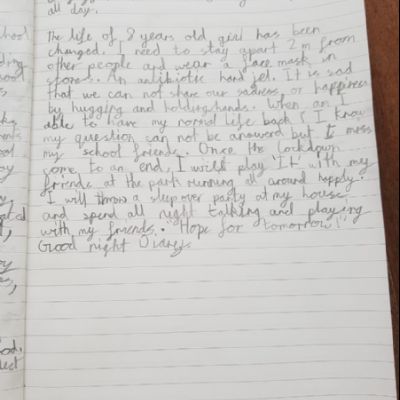 all day.
The life of 8 years old girl has been
changed. I need to stay apart 2m from
other people and wear a face mask in
stores. An antibiotic hand jel. It is sad
that we can not share our sadness or happiness
by hugging and holding hands. When am I
able to have my normal life back? I know
my question can not be answerd but I miss
my school friends. Once the lockdown
come to an end, I will play 'It' with my
friends at the park running all around happly.
I will throw a sleepover party at my house
and spend all night talking and playing
with my friends. "Hope for tomorrow!"
Good night Diary.